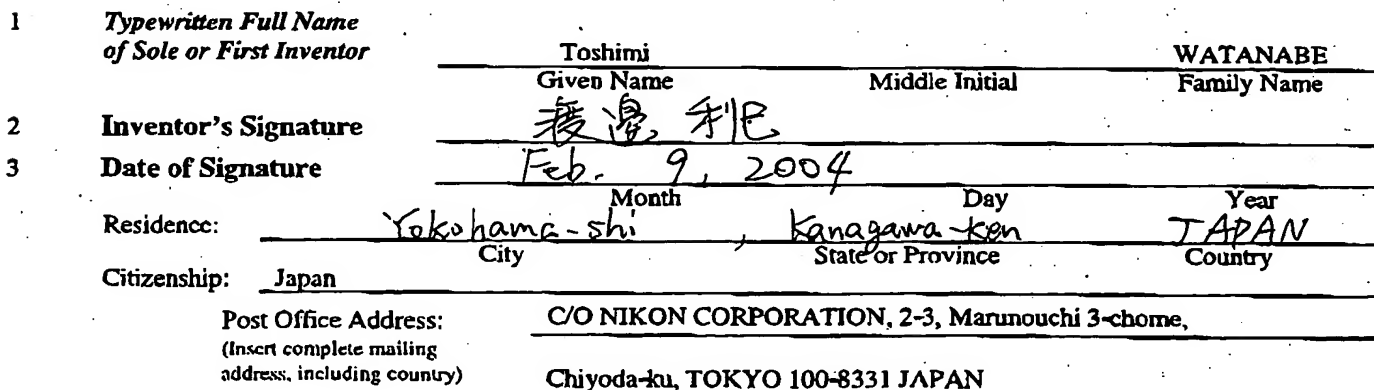 1 Typewritten Full Name
of Sole or First Inventor Toshimi WATANABE
Given Name Middle Initial Family Name
2 Inventor's Signature 渡邊 利巳
3 Date of Signature Feb. 9, 2004
Month Day Year
Residence: Yokohama-shi, Kanagawa-ken JAPAN
City State or Province Country
Citizenship: Japan
Post Office Address: C/O NIKON CORPORATION, 2-3, Marunouchi 3-chome,
(Insert complete mailing
address, including country) Chiyoda-ku, TOKYO 100-8331 JAPAN